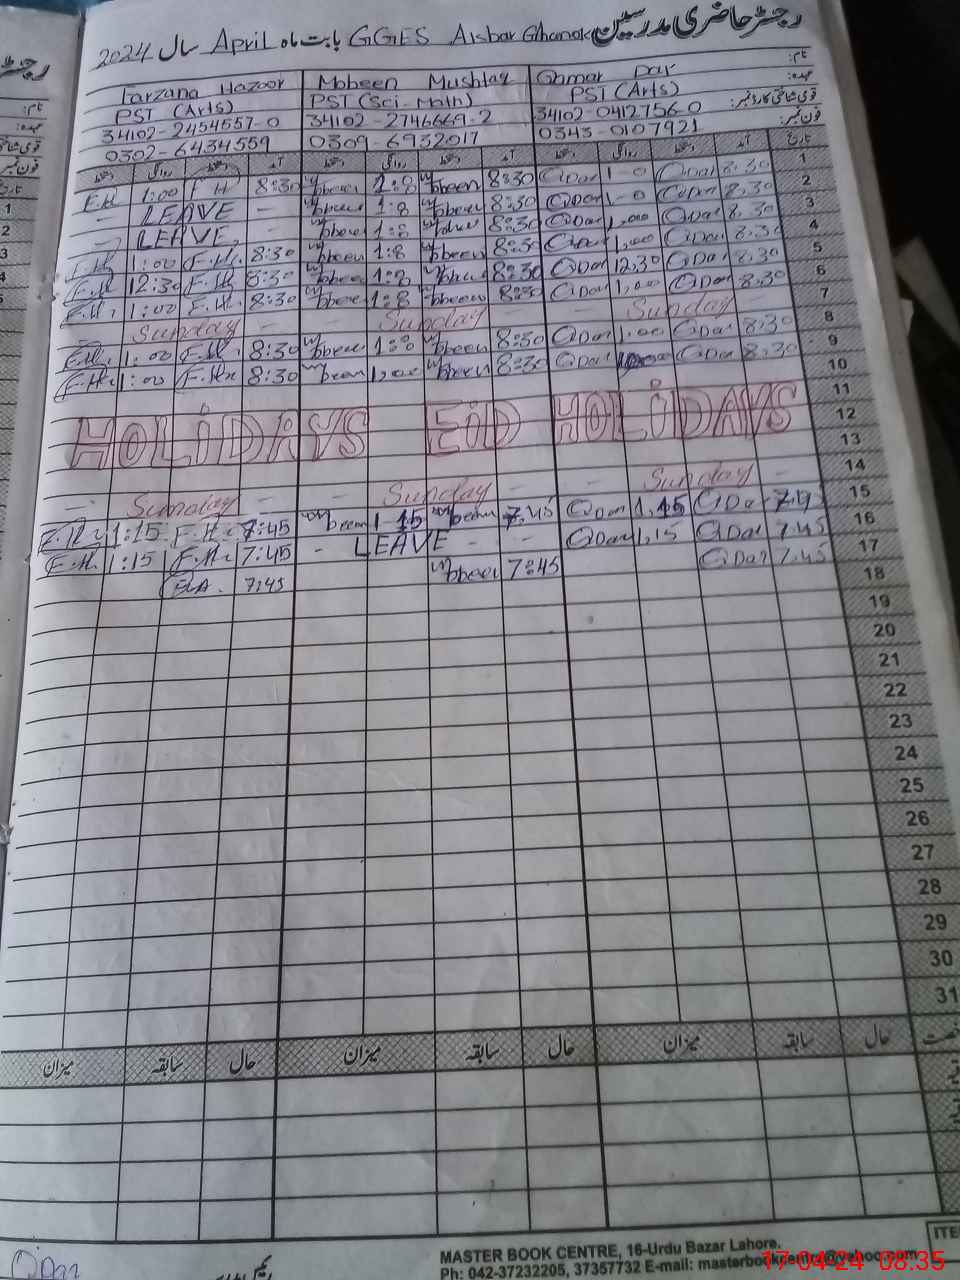 رجسٹر حاضری مدرسین GGES Aisbar Ghanok بابت ماہ April سال 2024
نام: Ghmar Dar Mobeen Mushtaq Farzana Hazoor
عہدہ: PST (Arts) PST (Sci-Math) PST (Arts)
قومی شناختی کارڈ نمبر: 34102-0412756-0 34102-2746669-2 34102-2454557-0
فون نمبر: 0343-0107921 0309-6932017 0302-6434559
تاریخ آمد دستخط روانگی دستخط آمد دستخط روانگی دستخط آمد دستخط روانگی دستخط
1 8:30 QDar 1-0 QDar 8:30 Mobeen 1:8 Mobeen 8:30 F.H 1:00 F.H
2 8.30 QDar 1-0 QDar 8:30 Mobeen 1:8 Mobeen - LEAVE -
3 8.30 QDar 1,000 QDar 8:30 1:8 Mobeen - LEAVE -
4 8.30 QDar 1,000 QDar 8:30 Mobeen 1:8 Mobeen 8:30 F.H. 1:00 F.H.
5 8.30 QDar 12.30 QDar 8:30 1:8 Mobeen 8:30 F.H 12:30 F.H
6 8.30 QDar 1,000 QDar 8:30 Mobeen 1:8 Mobeen 8:30 F.H. 1:00 F.H.
7 - Sunday - - Sunday - - Sunday -
8 8:30 QDar 1.00 QDar 8:30 Mobeen 1:8 Mobeen 8:30 F.H. 1:00 F.H.
9 8:30 QDar QDar 8:30 Mobeen 1,00 Mobeen 8:30 F.H. 1:00 F.H.
10
11
12 HOLIDAYS EID HOLIDAYS
13
14 - Sunday - - Sunday - - Sunday -
15 QDar 1.15 QDar 7.45 Mobeen 1-15 Mobeen 7:45 F.H. 1:15
16 7.45 QDar 1,15 QDar - - LEAVE - 7:45 F.H. 1:15 F.H.
17 7.45 QDar 7:45 Mobeen 7:45
18
19
20
21
22
23
24
25
26
27
28
29
30
31
حال سابقہ میزان حال سابقہ میزان حال سابقہ میزان
QDar
MASTER BOOK CENTRE, 16-Urdu Bazar Lahore.
Ph: 042-37232205, 37357732 E-mail: masterbookcentre@yahoo.com
ITE
17-04-24 08:35